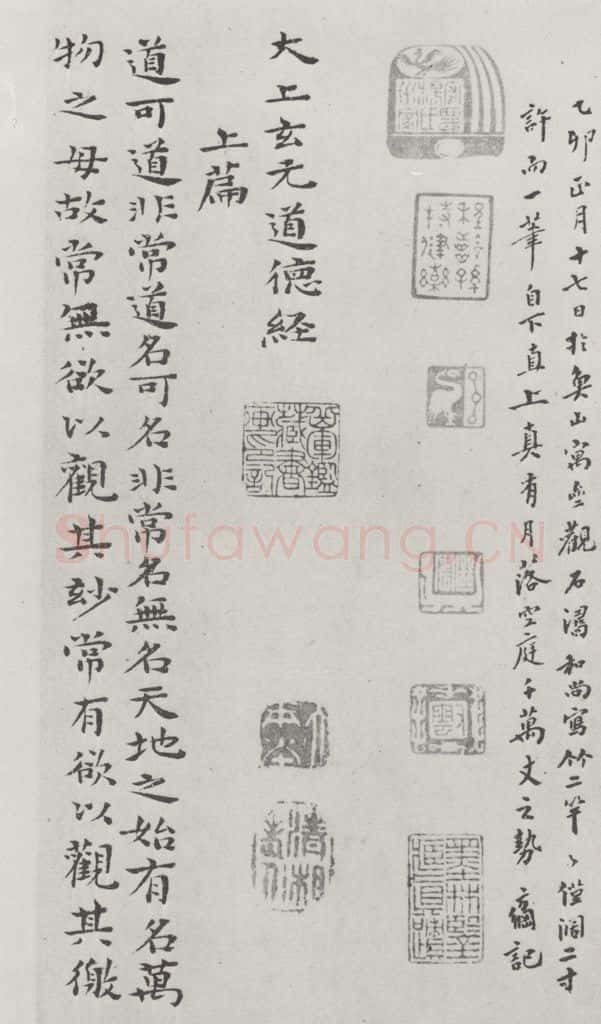 乙卯正月十七日於山寓觀石濤和尚寫竹二竿々僅闊二寸
許而一筆自下直上真有月落空庭千萬丈之勢 記
大上玄无道徳経
上篇
道可道非常道名可名非常名無名天地之始有名萬
物之母故常無欲以觀其玅常有欲以觀其徼
清湘老人
Shufawang.CN